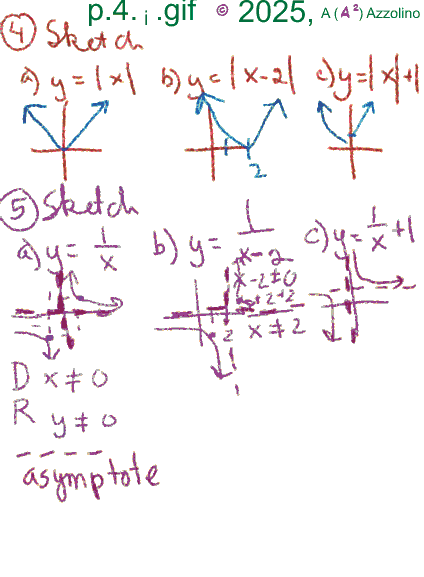 p.4. i .gif © 2025, A ( A ²) Azzolino
④ Sketch
a) y = |x| b) y = |x-2| c) y = |x|+1
2
⑤ Sketch
a) y = 1/x b) y = 1/x-2 c) y = 1/x + 1
x-2≠0
+2 +2
2 x ≠ 2
D x ≠ 0
R y ≠ 0
asymptote